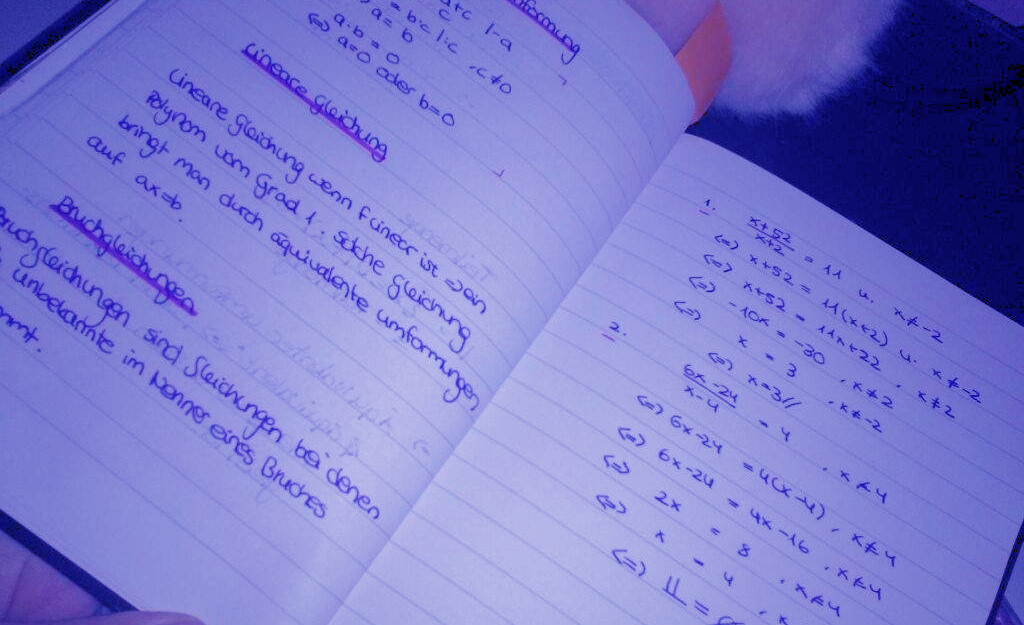 umformung
a+c |-a
c
= b·c |:c , c≠0
a = b
a·b = 0
(=) a=0 oder b=0
Lineare gleichung
Lineare gleichung wenn f linear ist => ein
Polynom vom Grad 1. Solche gleichung
bringt man durch äquivalente umformungen
auf ax=b.
Bruchgleichungen
Bruchgleichungen sind gleichungen bei denen
unbekannte im Nenner eines Bruches
ommt.
1. x+52/x+2 = 11 u. x≠-2
(=) x+52 = 11(x+2) u. x≠-2
(=) x+52 = 11x+22 , x≠2
(=) -10x = -30 , x≠2
(=) x = 3 , x≠-2
(=) x=3//
2. 6x-24/x-4 = 4 , x≠4
(=) 6x-24 = 4(x-4) , x≠4
(=) 6x-24 = 4x-16 , x≠4
(=) 2x = 8 , x≠4
(=) x = 4 , x
(=) 𝕃 =